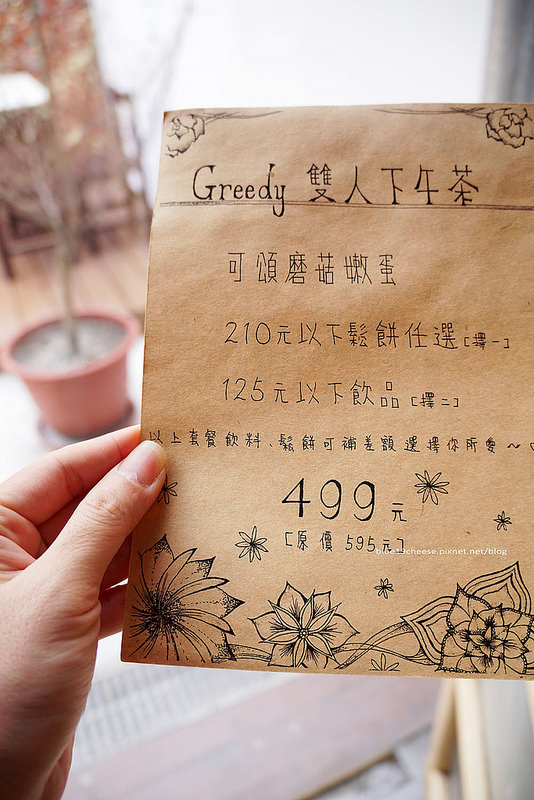 Greedy 雙人下午茶
可頌磨菇嫩蛋
210元以下鬆餅任選[擇一]
125元以下飲品[擇二]
以上套餐飲料、鬆餅可補差額選擇你所愛~♡
499元
[原價 595元]
blue15cheese.pixnet.net/blog